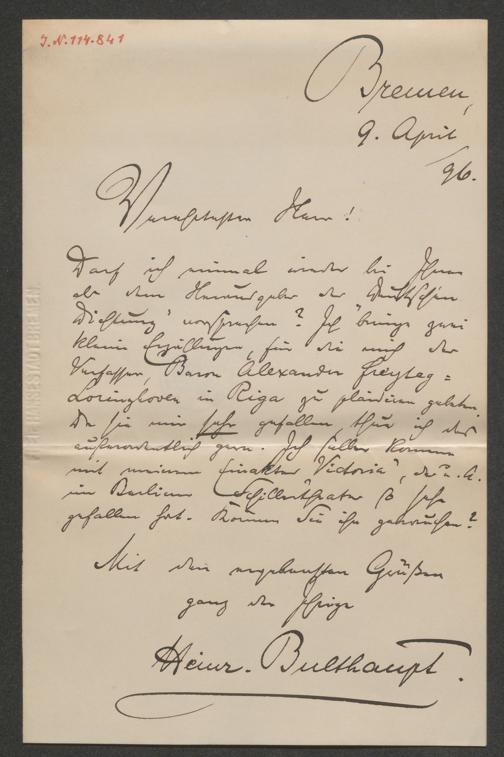 J.N. 114.841
Bremen,
9. April
/96.
Verehrtester Herr!
Darf ich einmal wieder bei Ihnen
als dem Herausgeber der „Deutschen
Dichtung" vorsprechen? Ich bringe zwei
kleine Erzählungen, für die mich der
Verfasser, Baron Alexander Freytag=
Loringhoven in Riga zu plaidiren gebeten.
Da sie mir sehr gefallen, thue ich das
außerordentlich gern. Ich selber komme
mit meinem Einakter „Victoria", der u. A.
im Berliner Schillertheater so sehr
gefallen hat. Können Sie ihn gebrauchen?
Mit den ergebensten Grüßen
ganz der Ihrige
Heinr. Bulthaupt.
HANSESTADT BREMEN.